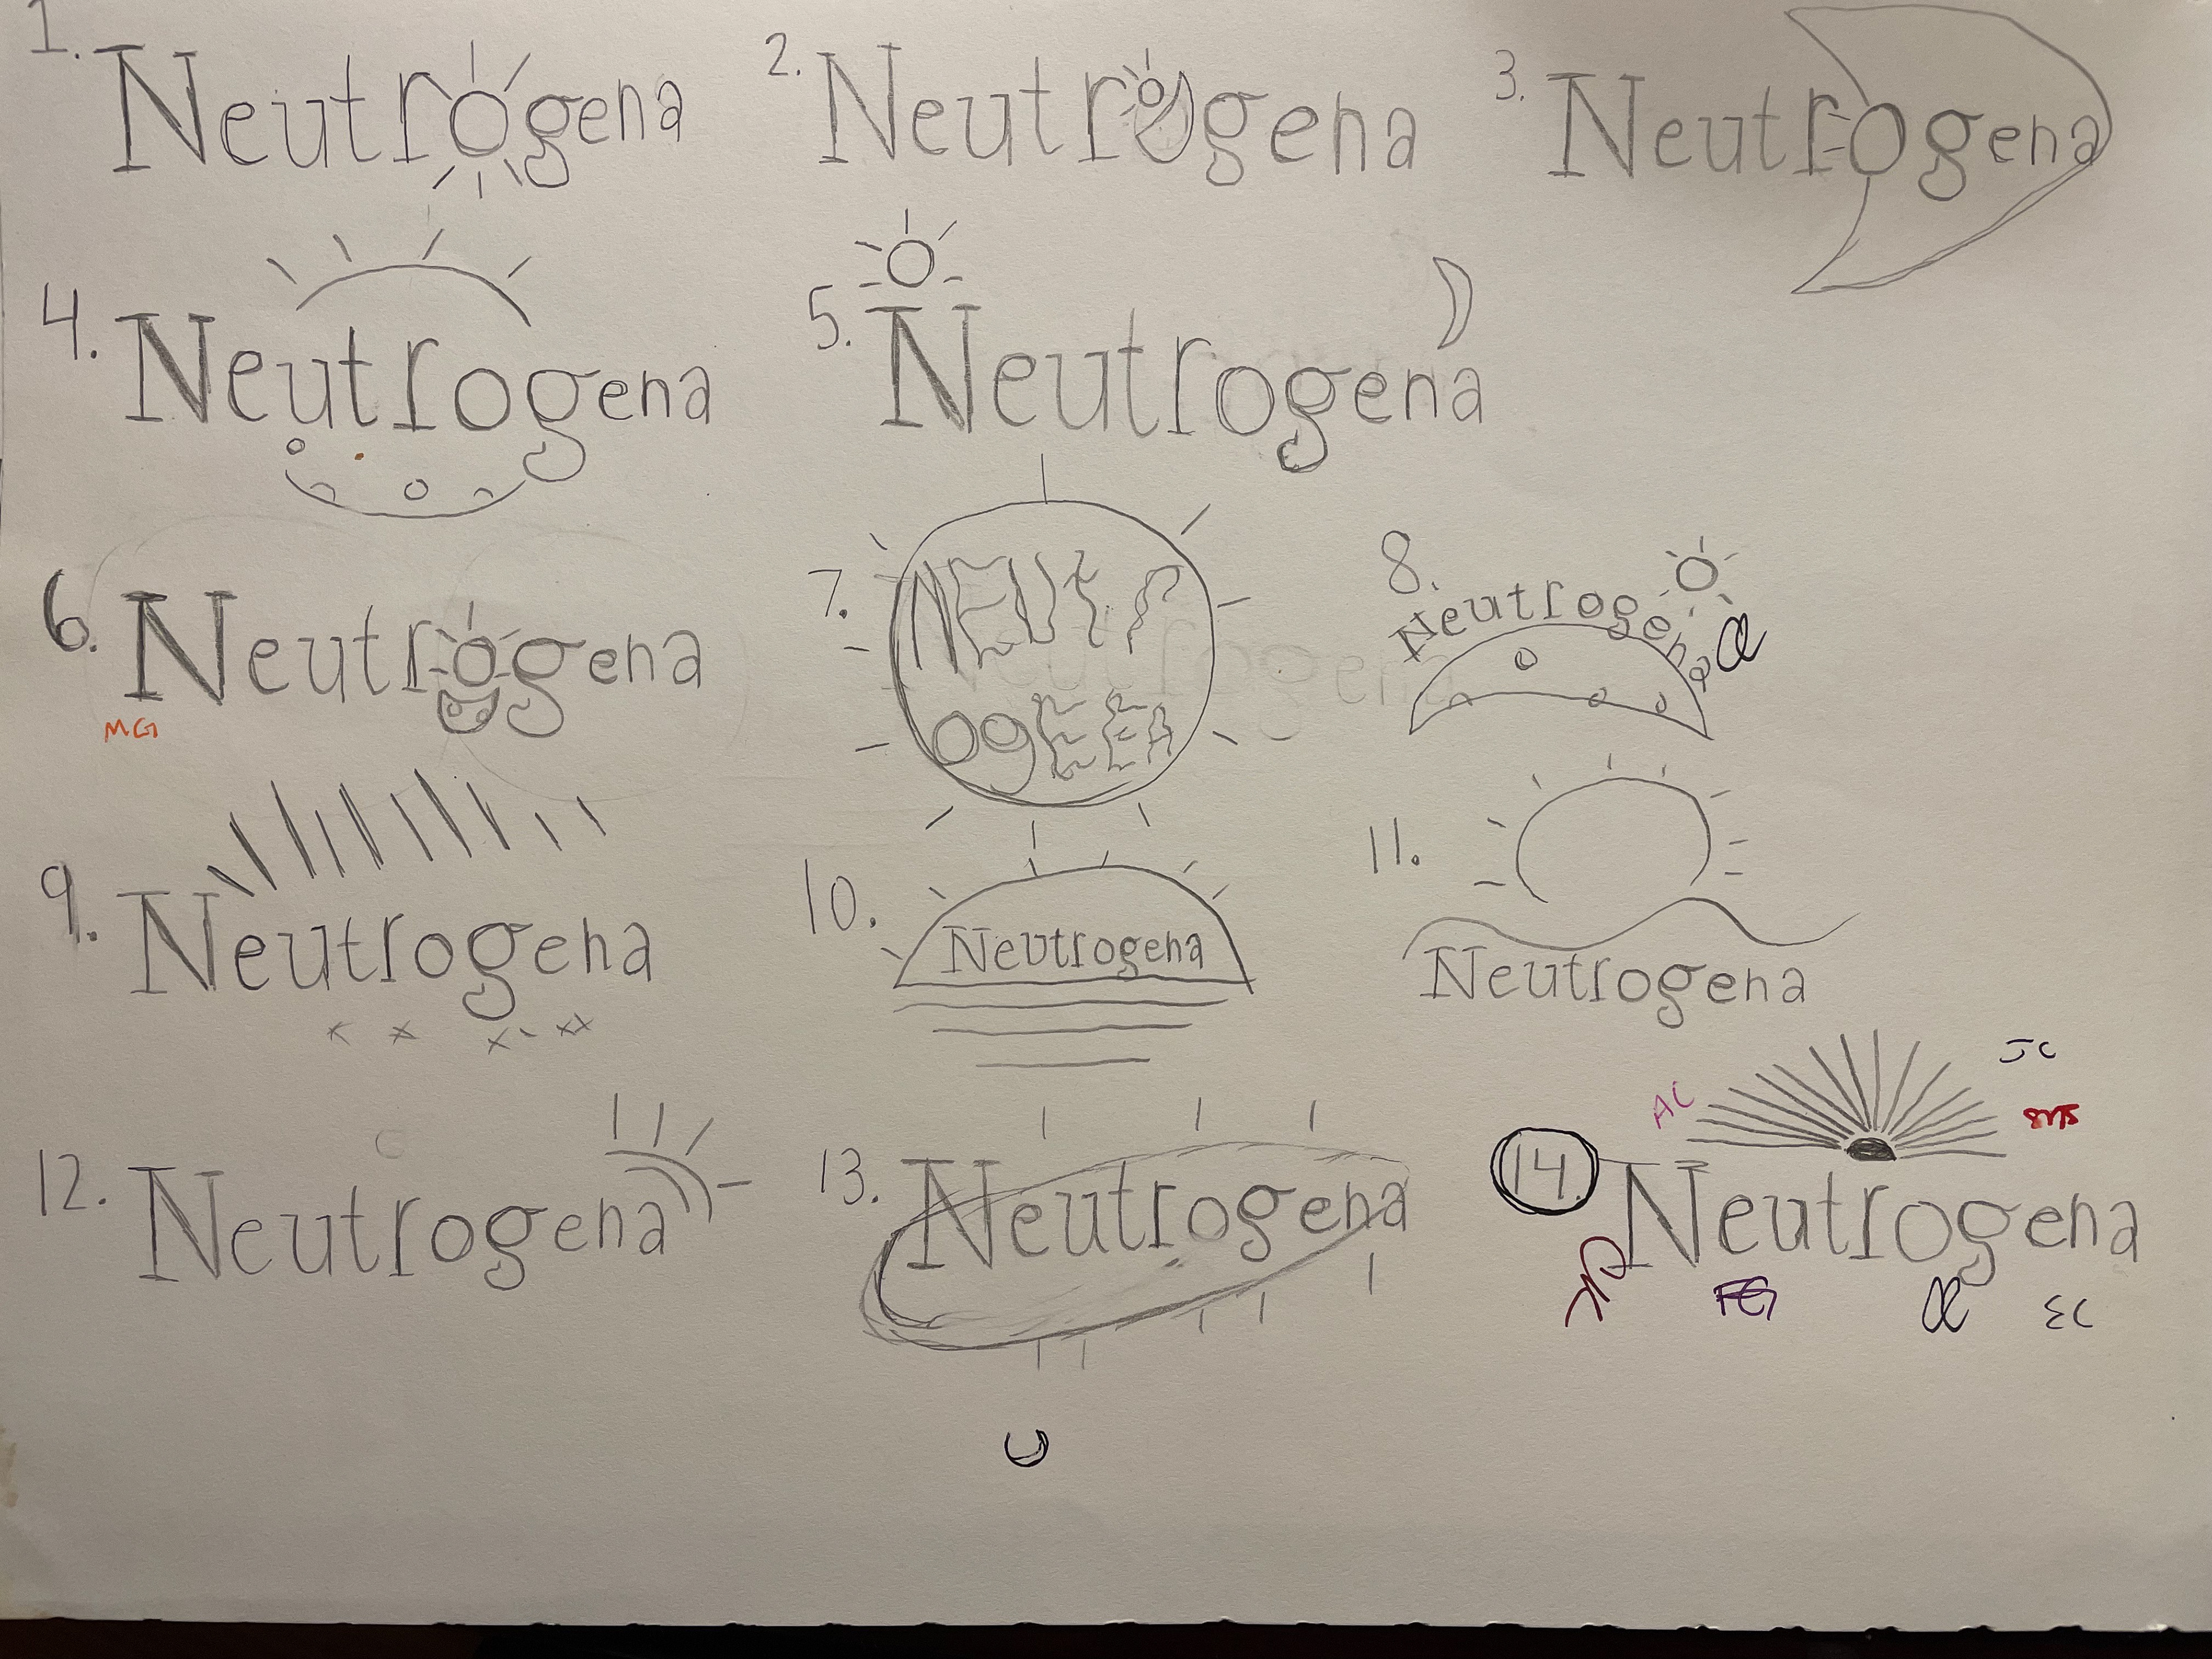 1. Neutrogena
2. Neutrogena
3. Neutrogena
4. Neutrogena
5. Neutrogena
6. Neutrogena
MG
7. NEUTr
OgEEA
8. Neutrogena
9. Neutrogena
10. Neutrogena
11. Neutrogena
12. Neutrogena
13. Neutrogena
JC
AC
14. Neutrogena
FG
EC